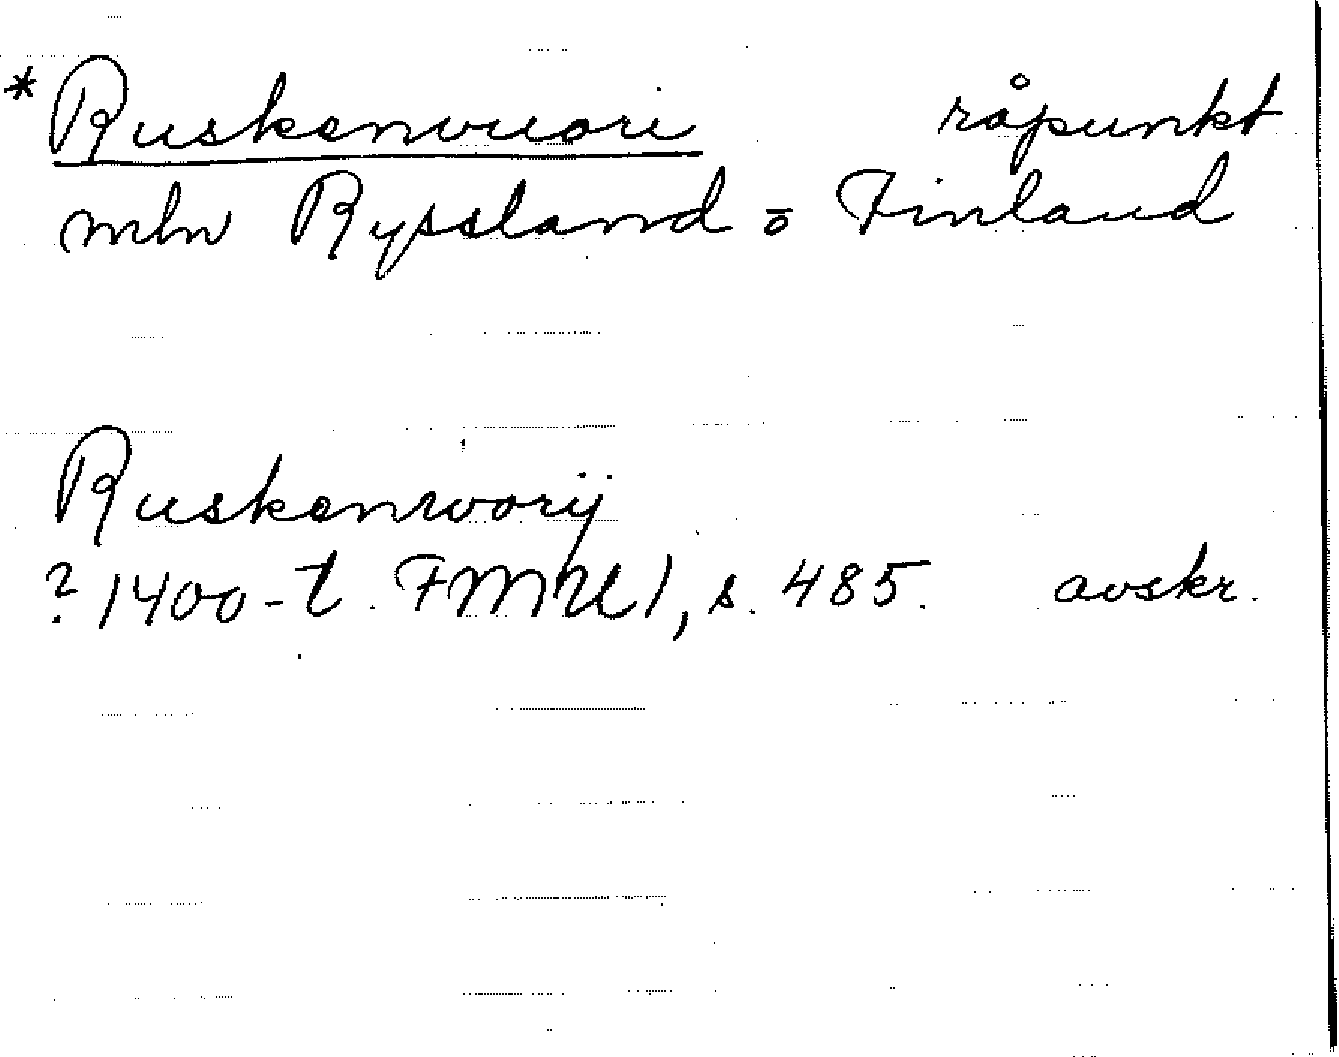 * Ruskenvuori råpunkt
mln Ryssland o Finland
Ruskenworij
? 1400-t. FMU 1, s. 485. avskr.